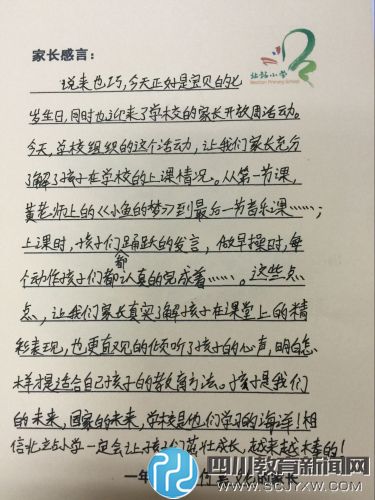 家长感言：
北站小学
说来也巧，今天正好是宝贝的七
岁生日，同时也迎来了学校的家长开放周活动。
今天，学校组织的这个活动，让我们家长充分
了解了孩子在学校的上课情况。从第一节课，
黄老师上的《小鱼的梦》到最后一节音乐课……；
上课时，孩子们踊跃的发言，做早操时，每
个动作孩子们都认真的完成着……。这些点
点，让我们家长真实了解孩子在课堂上的精
彩表现，也更直观的倾听了孩子的心声，明白怎
样才是适合自己孩子的教育方法。孩子是我们
的未来，国家的未来，学校是他们学习的海洋！相
信北站小学一定会让孩子们茁壮成长，越来越棒的！
一年 家长
四川教育新闻网